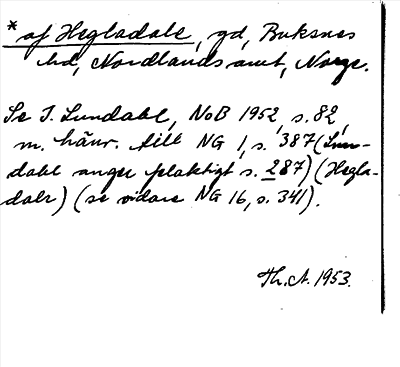 * af Hegladale, gd, Buksnes
hd, Nordlands amt, Norge.
Se I. Lundahl, NoB 1952, s. 82,
m. hänv. till NG 1, s. 387 (Lun-
dahl anger felaktigt s. 287) (Hegla-
dalr) (se vidare NG 16, s. 341).
Th. A. 1953.